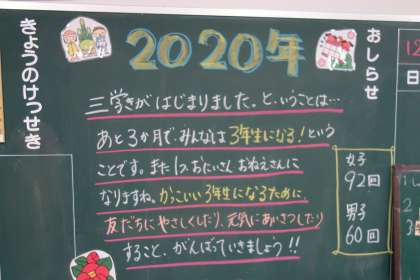 きょうのけっせき
2020年
おしらせ
三学きがはじまりました。ということは…
あと3か月で、みんなは3年生になる！という
ことです。また1つ、おにいさん おねえさんに
なりますね。かっこいい3年生になるために
友だちにやさしくしたり、元気にあいさつしたり
すること、がんばっていきましょう!!
女子
92回
男子
60回
日